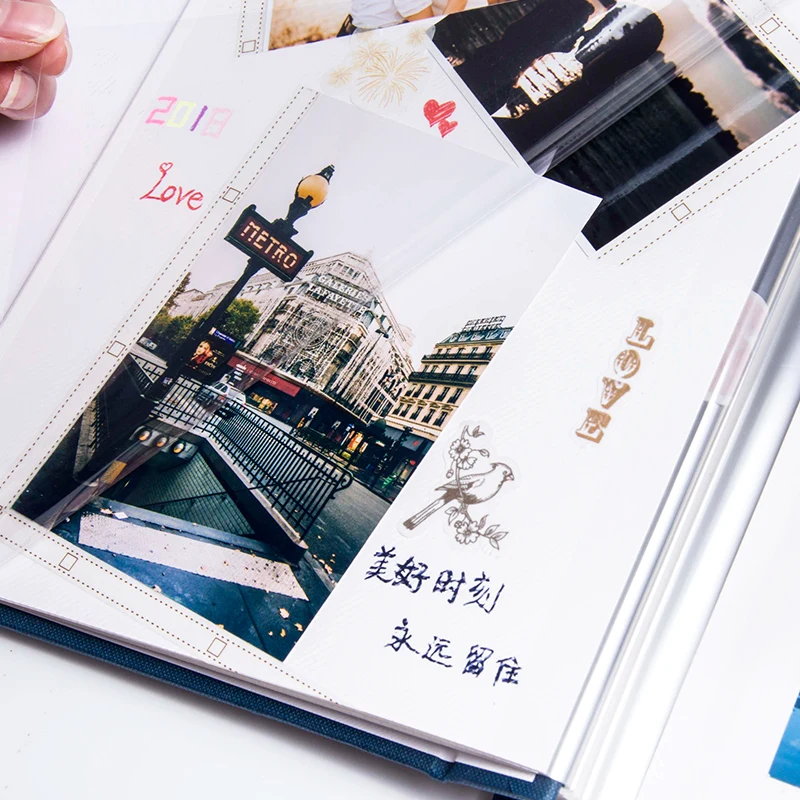 2018
Love
METRO
GALERIES
LAFAYETTE
LOVE
美好时刻
永远留住